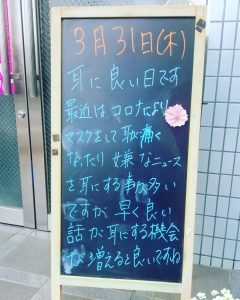 3月31日(木)
耳に良い日です
最近はコロナにより
マスクをして耳が痛く
なったり 嫌なニュース
を耳にする事が多い
ですが 早く良い
話が耳にする機会
が増えると良いですね